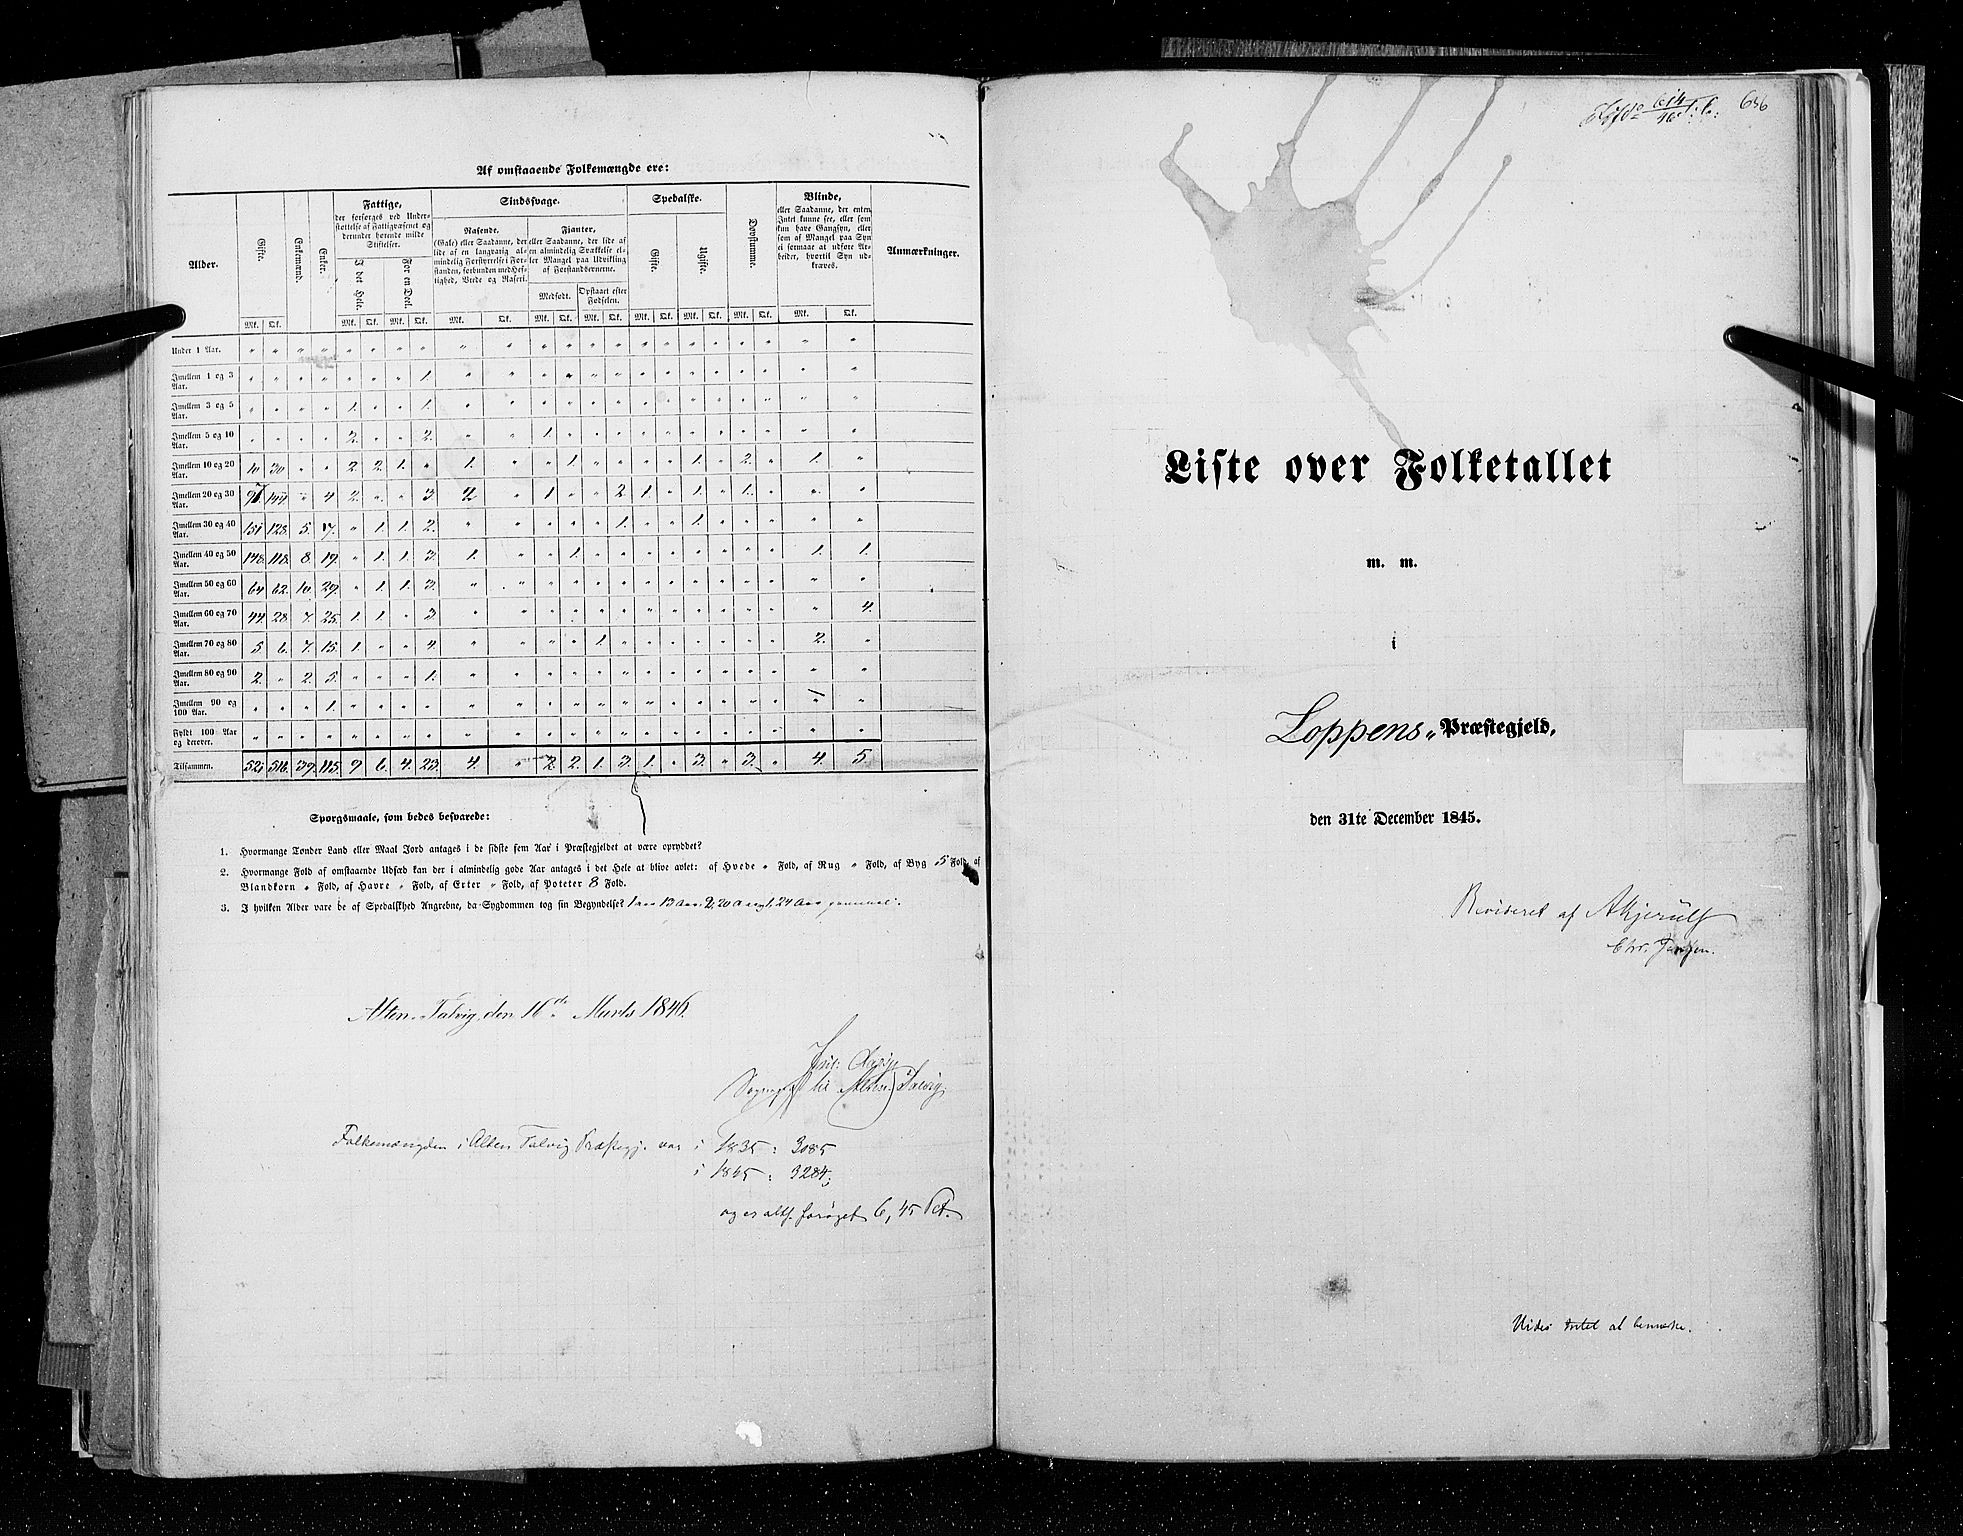 Af omstaaende Folkemængde ere:
Alder. Gifte. Enkemænd. Enker. Fattige, der forsørges ved Understøttelse af Fattigvæsenet og derunder hørende milde Stiftelser. Sindssvage. Spedalske. Døvstumme. Blinde, eller Saadanne, der enten Intet kunne see, eller som kun have Gangsyn, eller som af Mangel paa Syn ei formaae at udføre Arbeider, hvortil Syn udkræves. Anmærkninger.
I det Hele. For en Deel. Rasende. (Gale) eller Saadanne, der lide af en langvarig almindelig Forstyrrelse i Forstanden, forbunden med Heftighed, Vrede og Raseri. Fjanter, eller Saadanne, der lide af en almindelig Svækkelse eller Mangel paa Udvikling af Forstandsevnerne. Gifte. Ugifte.
Medfødt. Opstaaet efter Fødselen.
Mk. Qk. Mk. Qk. Mk. Qk. Mk. Qk. Mk. Qk. Mk. Qk. Mk. Qk. Mk. Qk. Mk. Qk. Mk. Qk.
Under 1 Aar. " " " " " " " " " " " " " " " " " " " " " "
Imellem 1 og 3 Aar. " " " " " " " 1. " " " " " " " " " " " " " "
Imellem 3 og 5 Aar. " " " " 1. " " 1. " " " " " " " " " " " " " "
Imellem 5 og 10 Aar. " " " " 2. " " 2. " " 1. " " " " " " " " " " "
Imellem 10 og 20 Aar. 10 30 " " 2. 2. 1. " 1. " " 1. " " " " 1. " 2. " 1. "
Imellem 20 og 30 Aar. 97 144 " 4 2. " " 3 2. " 1 " " 2. 1. " 1. " 1. " " "
Imellem 30 og 40 Aar. 151 128. 5. 17. " 1. 1. 2. " " " " " 1. " " 1. " " " " "
Imellem 40 og 50 Aar. 148. 118. 8. 19. " 1. 1. 3. 1. " " 1. " " " " " " " " 1. 1.
Imellem 50 og 60 Aar. 64 62. 10. 29. " 1. 1. 3. " " " " " " " " " " " " " "
Imellem 60 og 70 Aar. 44. 28. 7. 25. 1. 1. " 3. " " " " " " " " " " " " " 4.
Imellem 70 og 80 Aar. 5. 6. 7. 15. 1. " " 4. " " " " 1. " " " " " " " 2. "
Imellem 80 og 90 Aar. 2. " 2. 5. " " " 1. " " " " " " " " " " " " " "
Imellem 90 og 100 Aar. " " " 1. " " " " " " " " " " " " " " " " "
Fyldt 100 Aar og derover. " " " " " " " " " " " " " " " " " " " " " "
Tilsammen. 521 516. 39. 115. 9. 6. 4. 23. 4. " 2. 2. 1. 3. 1. " 3. " 3. " 4. 5.
Spørgsmaale, som bedes besvarede:
1. Hvormange Tønder Land eller Maal Jord antages i de sidste fem Aar i Præstegjeldet at være opryddet?
2. Hvormange Fold af omstaaende Udsæd kan der i almindelig gode Aar antages i det Hele at blive avlet: af Hvede " Fold, af Rug " Fold, af Byg 5 Fold, af
Blandkorn " Fold, af Havre " Fold, af Erter " Fold, af Poteter 8 Fold.
3. I hvilken Alder vare de af Spedalskhed Angrebne, da Sygdommen tog sin Begyndelse?
Alten-Talvig, den 16de Marts 1846.
Alten Talvig.
Folkemængden i Alten Talvig Præstegj. var i 1835: 3085
i 1845: 3284;
og er altsaa forøget 6,45 Pct.
656
Liste over Folketallet
m. m.
i
Loppens Præstegjeld,
den 31te December 1845.
Revideret af AKjerulf
Chr. Jensen.
Vides Intet at bemærke.